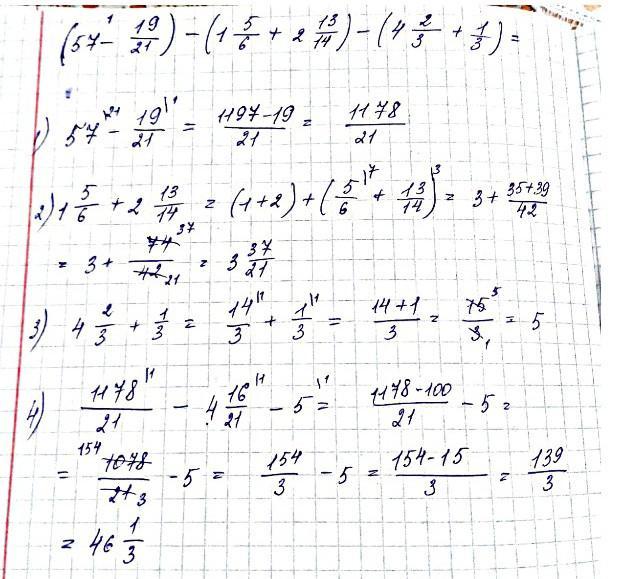 (57 - 19/21) - (1 5/6 + 2 13/14) - (4 2/3 + 1/3) =
1) 57 - 19/21 = 1197-19/21 = 1178/21
2) 1 5/6 + 2 13/14 = (1+2) + (5/6 + 13/14) = 3 + 35+39/42
= 3 + 74/42 37 21 = 3 37/21
3) 4 2/3 + 1/3 = 14/3 + 1/3 = 14+1/3 = 15/3 5 1 = 5
4) 1178/21 - 4 16/21 - 5 = 1178-100/21 - 5 =
= 154 1078/21 3 - 5 = 154/3 - 5 = 154-15/3 = 139/3
= 46 1/3